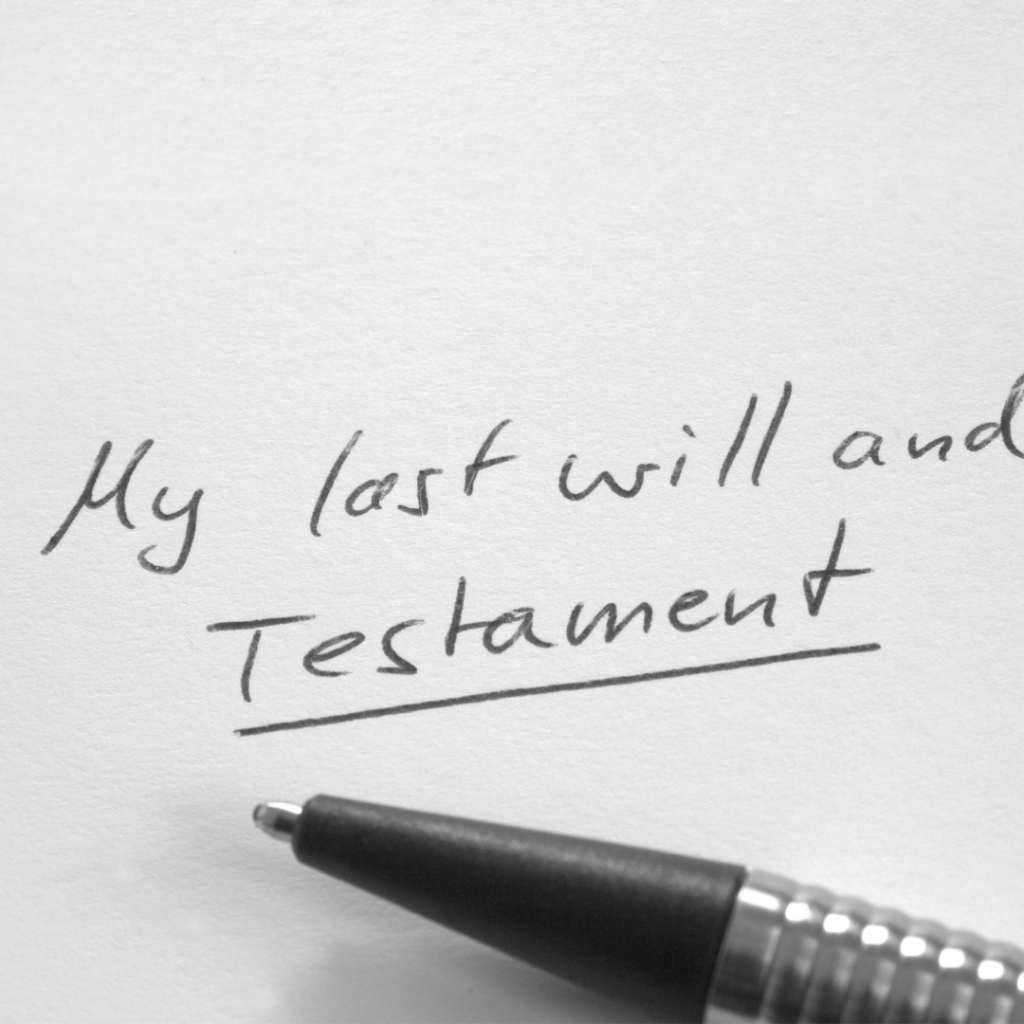 My last will and
Testament